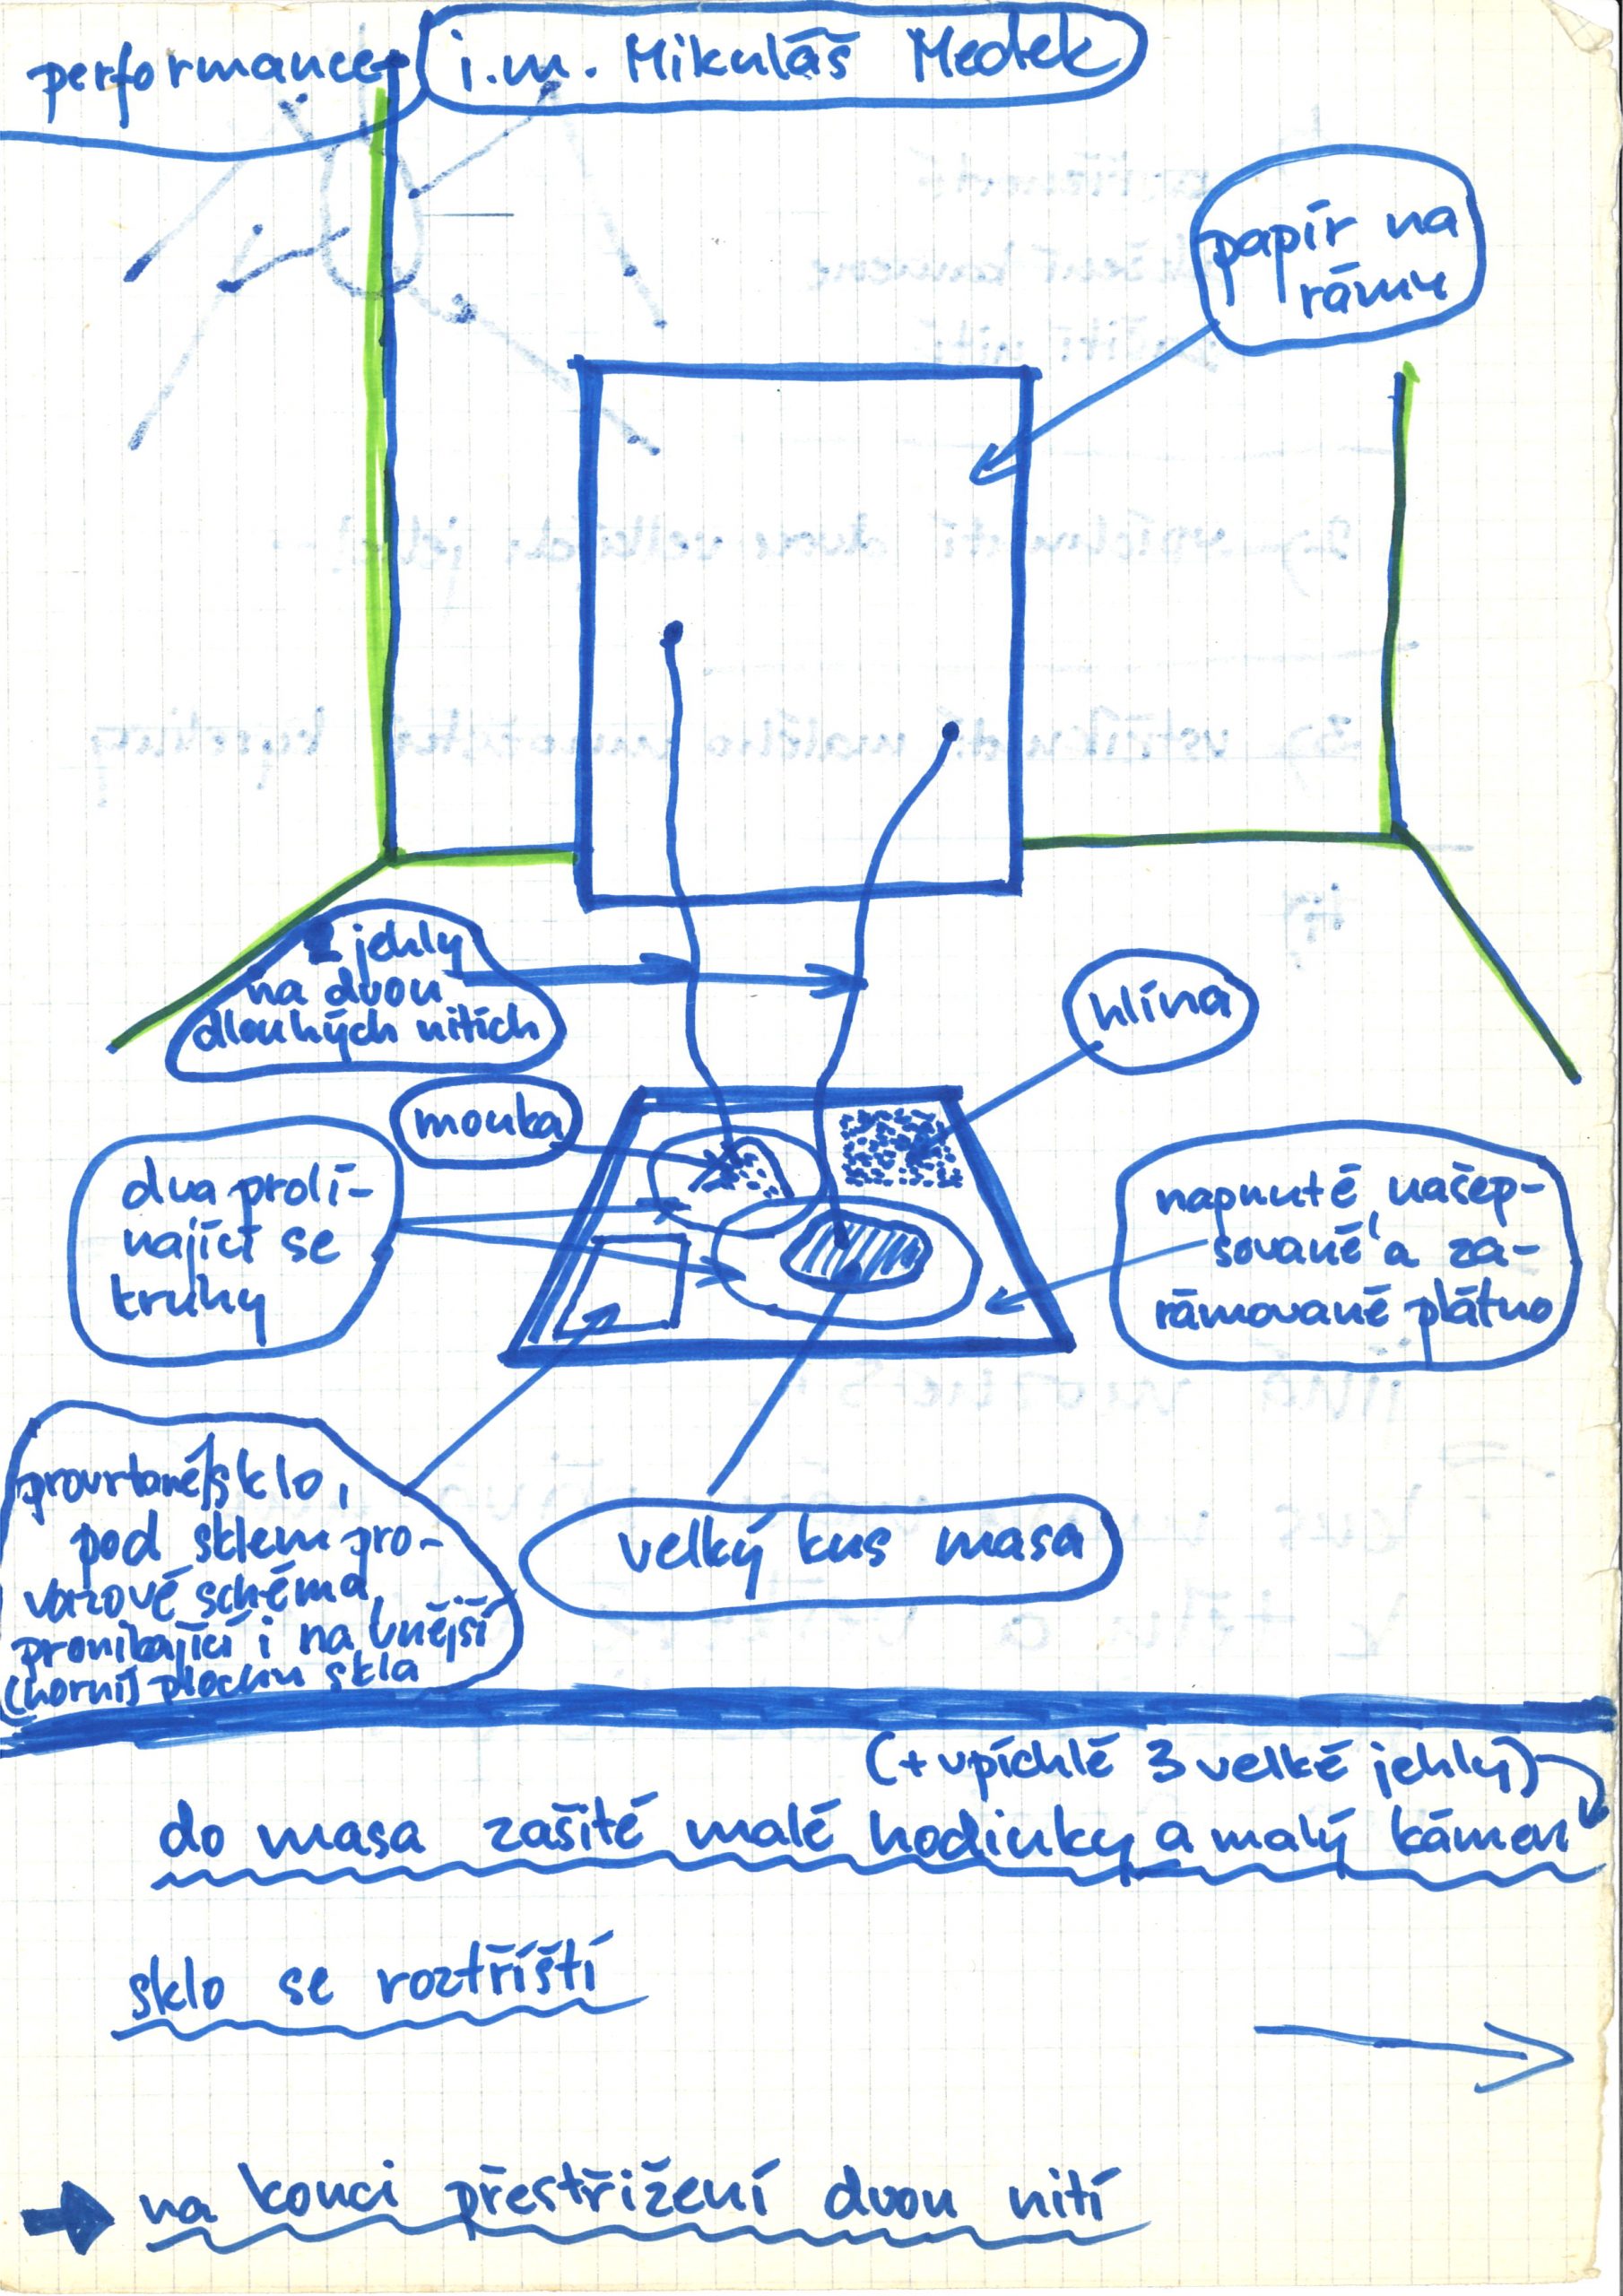 performance
i.m. Mikuláš Medek
papír na
rámu
2 jehly
na dvou
dlouhých nitích
hlína
mouka
dva prolí-
nající se
kruhy
napnuté, našep-
sované a za-
rámované plátno
provrtané sklo,
pod sklem pro-
vazové schéma,
pronikající i na vnější
(horní) plochu skla
velký kus masa
(+ vpíchlé 3 velké jehly)
do masa zašité malé hodinky a malý kámen
sklo se roztříští
na konci přestřižení dvou nití